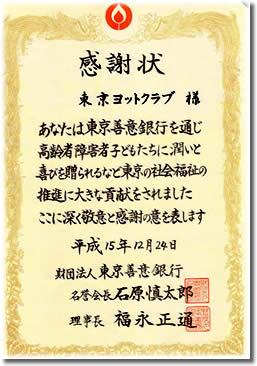 感謝状
東京ヨットクラブ 様
あなたは東京善意銀行を通じ
高齢者障害者子どもたちに潤いと
喜びを贈られるなど東京の社会福祉の
推進に大きな貢献をされました
ここに深く敬意と感謝の意を表します
平成15年12月24日
財団法人 東京善意銀行
名誉会長 石原慎太郎
理事長 福永正通